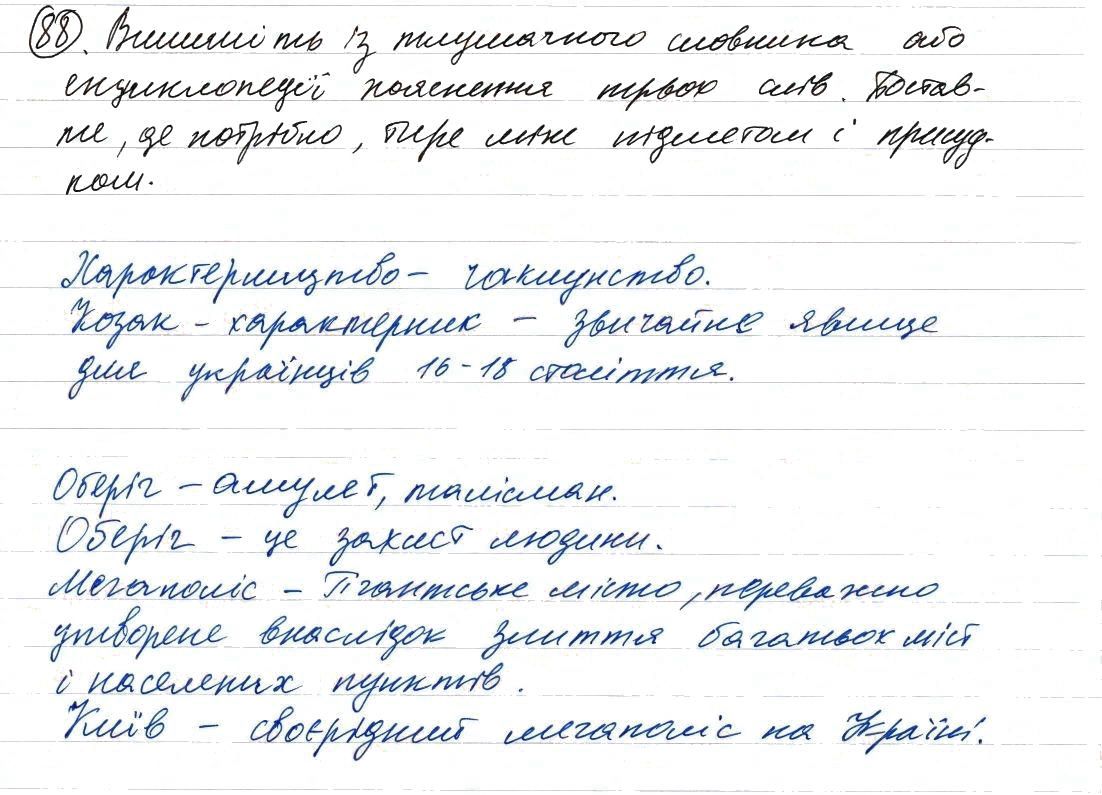 88. Випишіть із тлумачного словника або
енциклопедії пояснення трьох слів. Постав-
те, де потрібно, тире між підметом і присуд-
ком.
Характерництво - чаклунство.
Козак - характерник - звичайне явище
для українців 16-18 століття.
Оберіг - амулет, талісман.
Оберіг - це захист людини.
Мегаполіс - Гігантське місто, переважно
утворене внаслідок злиття багатьох міст
і населених пунктів.
Київ - своєрідний мегаполіс на Україні.